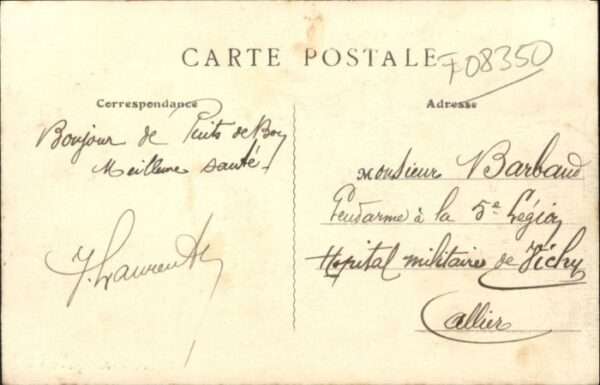 CARTE POSTALE
F08350
Correspondance
Bonjour de Puits de Bon
Meilleure santé.
J. Laurent
Adresse
Monsieur Barbaud
Gendarme à la 5e Légion
Hopital militaire de Vichy
Allier